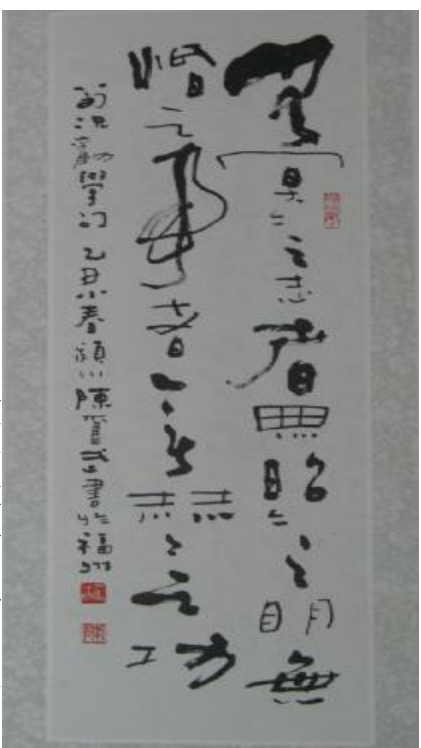 無冥〻之志者無昭〻之明無
惛〻之事者无赫〻之功
荀況勸學句 乙丑春潁川陳奮武書於福州